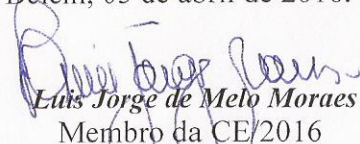 Belém, 05 de abril de 2016.
Luis Jorge de Melo Moraes
Membro da CE/2016